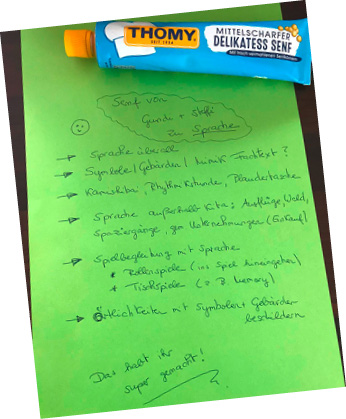 THOMY
SEIT 1930
MITTELSCHARFER
DELIKATESS SENF
Senf von
Gundi + Steffi
zu Sprache
→ Sprache überall
→ Symbole / Gebärden / Mimik Fachtext?
→ Kamishibai, Rhythmikstunde, Plaudertasche
→ Sprache außerhalb Kita: Ausflüge, Wald,
Spaziergänge, gem. Unternehmungen (Einkauf)
→ Spielbegleitung mit Sprache
* Rollenspiele (ins Spiel hineingehen)
* Tischspiele (z. B. Memory)
→ Örtlichkeiten mit Symbolen + Gebärden
beschildern
Das habt ihr
super gemacht!